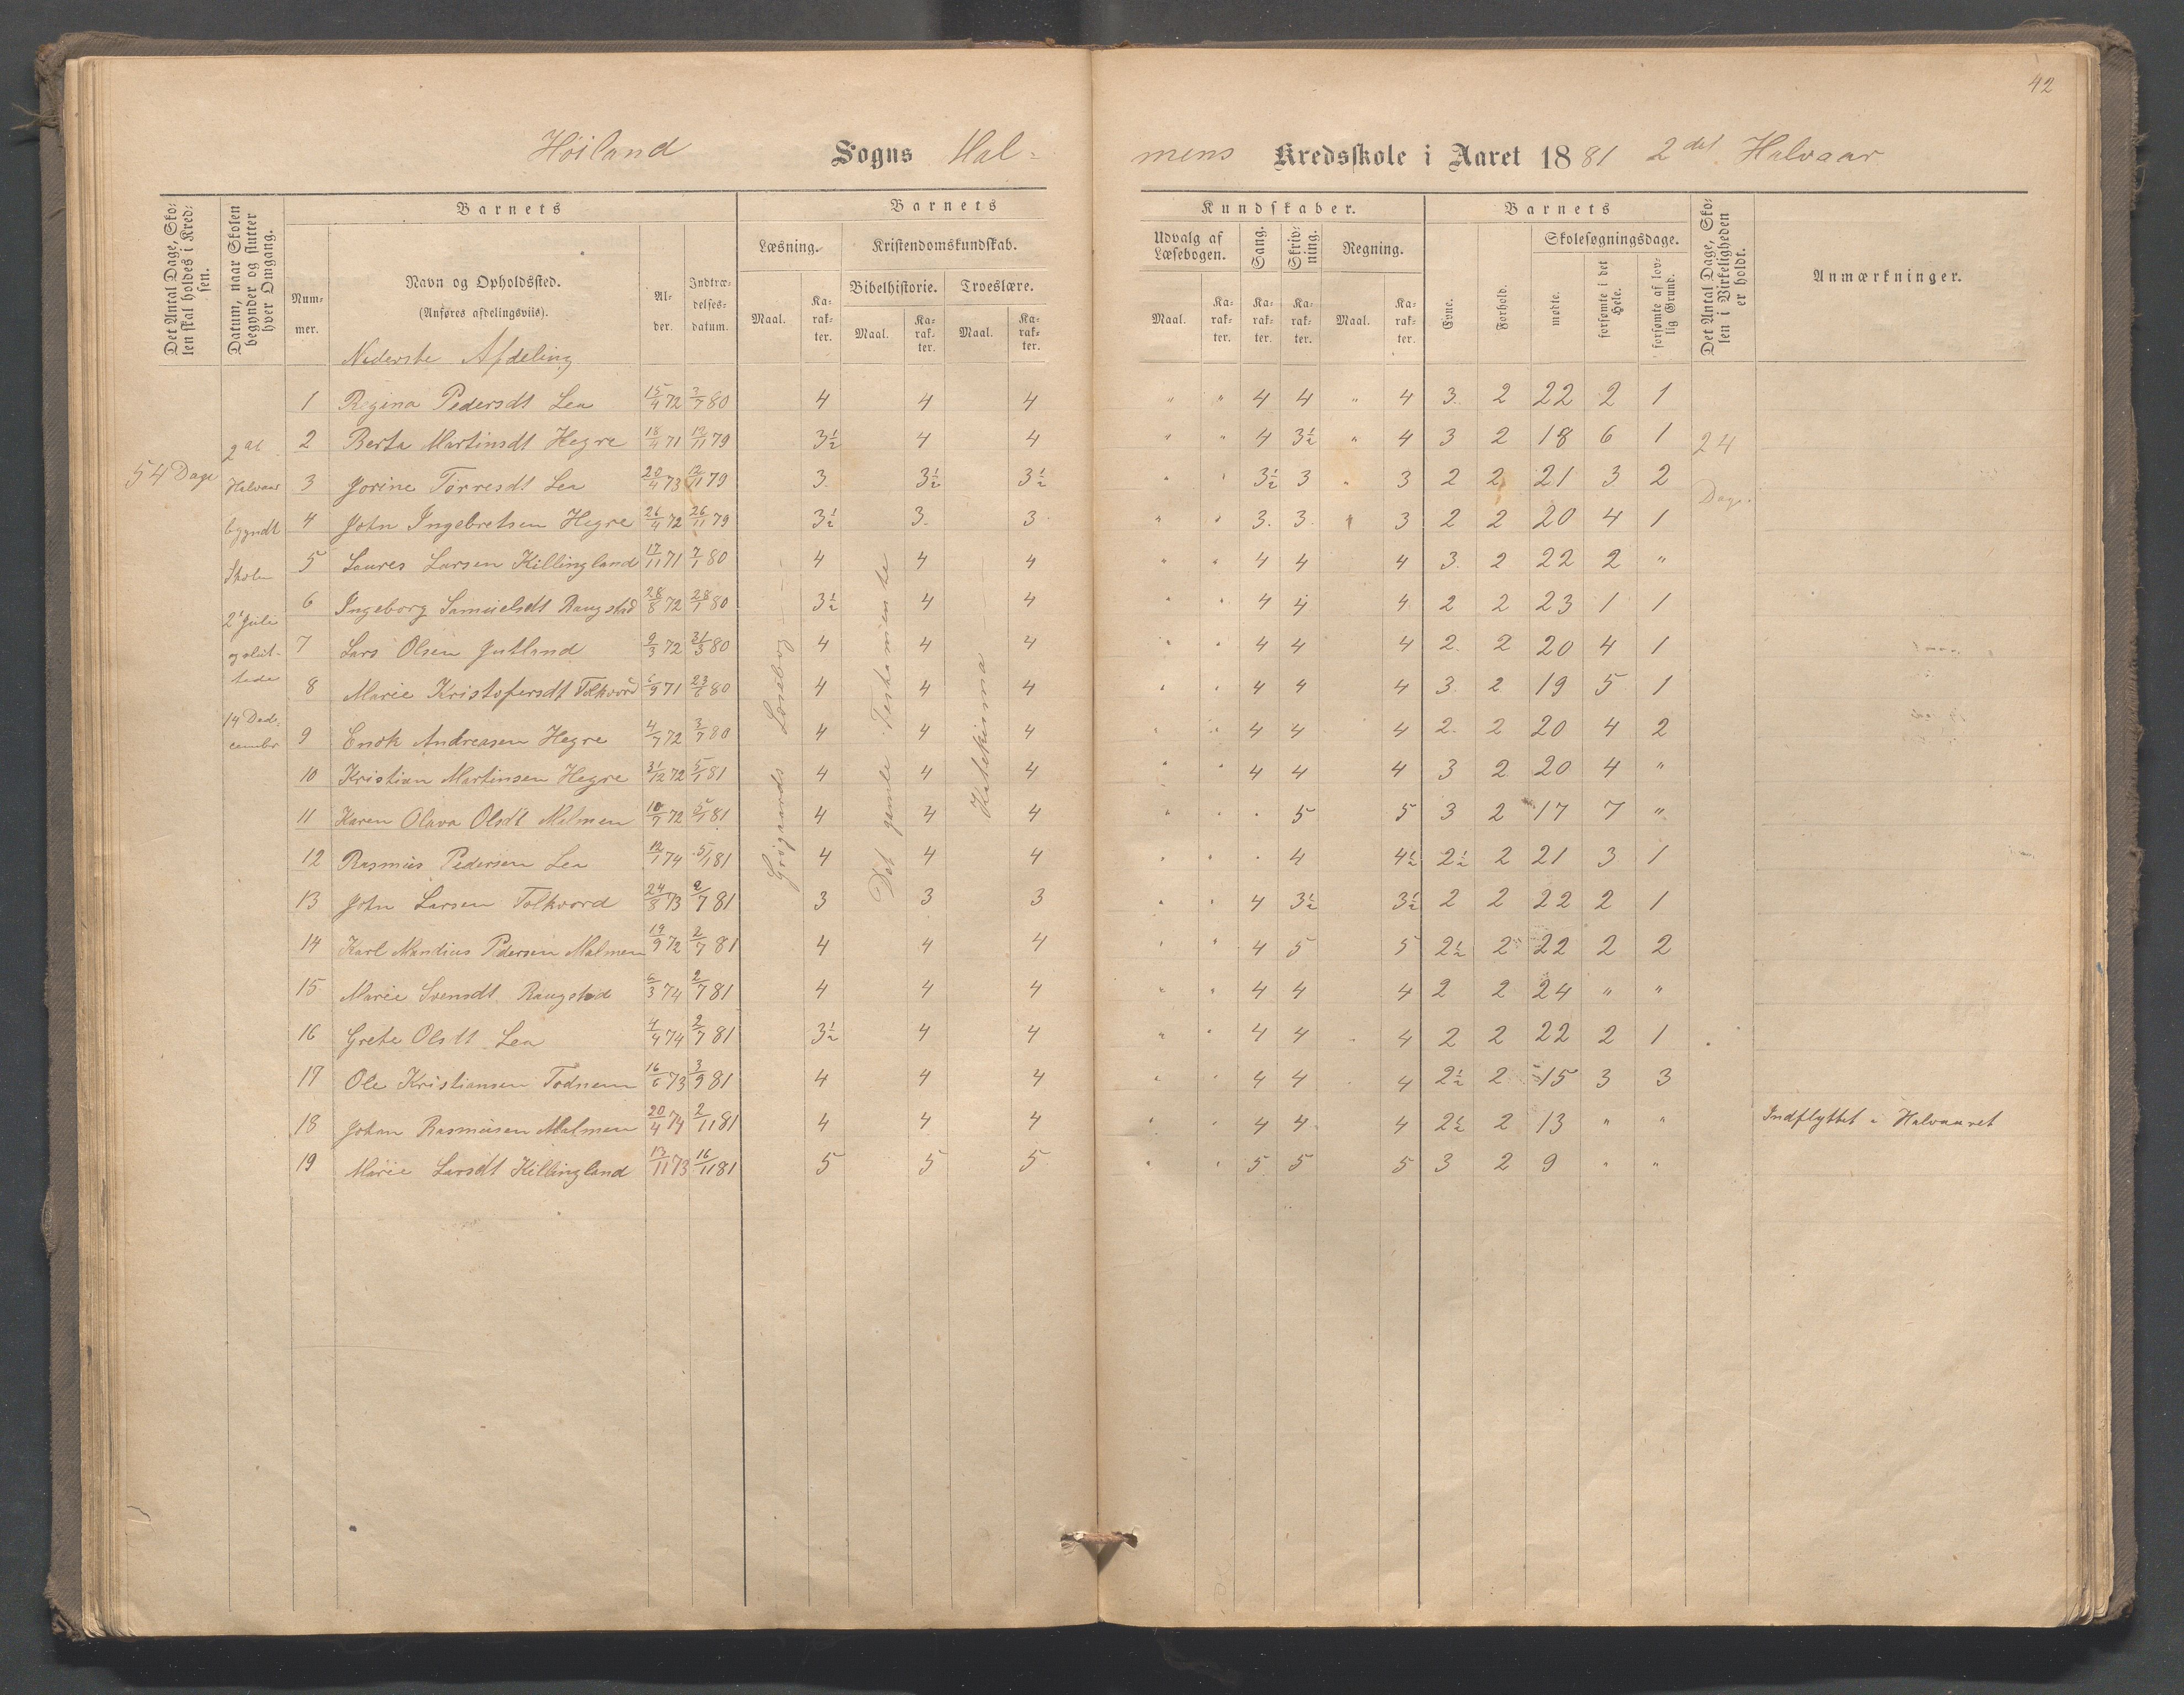 42
Höiland Sogns Hal-
mens Kredsskole i Aaret 1881 2det Halvaar
Det Antal Dage, Sko-
len skal holdes i Kred-
sen.
Datum, naar Skolen
begynder og slutter
hver Omgang.
Barnets
Num-
mer.
Navn og Opholdssted.
(Anføres afdelingsviis).
Al-
der.
Indtræ-
delses-
datum.
Barnets
Læsning.
Kristendomskundskab.
Bibelhistorie.
Troeslære.
Maal.
Ka-
rak-
ter.
Maal.
Ka-
rak-
ter.
Maal.
Ka-
rak-
ter.
Kundskaber.
Udvalg af
Læsebogen.
Sang.
Skriv-
ning.
Regning.
Maal.
Ka-
rak-
ter.
Ka-
rak-
ter.
Ka-
rak-
ter.
Maal.
Ka-
rak-
ter.
Barnets
Evne.
Forhold.
Skolesøgningsdage.
mødte.
forsømte i det
Hele.
forsømte af lov-
lig Grund.
Det Antal Dage, Sko-
len i Virkeligheden
er holdt.
Anmærkninger.
Nederste Afdeling
54 Dage
2det
Halvaar
begyndt
Skolen
2 Juli
og slut-
tede
14 De-
cember
Grøgaards Læsebog
Det gamle Testamente
Katekisma
24
Dage.
1 Regina Pedersdt Lea 15/4 72 3/7 80 4 4 4 " " 4 4 " 4 3. 2 22 2 1
2 Berta Martinsdt Hegre 18/11 71 12/11 79 3½ 4 4 " " 4 3½ " 4 3 2 18 6 1
3 Jorine Tørresdt Lea 20/4 73 12/11 79 3. 3½ 3½ " " 3½ 3 " 3 2 2 21 3 2
4 John Ingebretsen Hegre 26/4 72 26/11 79 3½ 3. 3 " " 3. 3. " 3 2 2 20 4 1
5 Laures Larsen Killingland 17/11 71 7/1 80 4 4 4 " " 4 4 4 3. 2 22 2 "
6 Ingeborg Samuelsdt Raugstad 28/8 72 28/1 80 3½ 4 4 " " 4 4 4 2 2 23 1 1
7 Lars Olsen Jutland 9/3 72 31/3 80 4 4 4 " " 4 4 4 2. 2 20 4 1
8 Marie Kristofersdt Tolkvord 6/9 71 23/6 80 4 4 4 " " 4 4 4 3. 2 19 5 1
9 Enok Andreasen Hegre 4/7 72 3/7 80 4 4 4 " " 4 4 4 2. 2 20 4 2
10 Kristian Martinsen Hegre 31/12 72 5/1 81 4 4 4 " " 4 4 4 3 2 20 4 "
11 Karen Olava Olsdt Malmen 10/7 72 5/1 81 4 4 4 " " " 5 5 3 2 17 7 "
12 Rasmus Pedersen Lea 12/1 74 5/1 81 4 4 4 " " " 4 4½ 2½ 2 21 3 1
13 John Larsen Tolkvord 24/8 73 2/7 81 3 3 3 " " 4 3½ 3½ 2 2 22 2 1
14 Karl Mandius Pedersen Malmen 19/9 72 2/7 81 4 4 4 " " 4 5 5 2½ 2 22 2 2
15 Marie Svensdt Raugstad 6/3 74 2/7 81 4 4 4 " " 4 4 4 2 2 24 " "
16 Grete Olsdt Lea 4/4 74 2/7 81 3½ 4 4 " " 4 4 4 2 2 22 2 1
17 Ole Kristiansen Todnem 16/6 73 3/9 81 4 4 4 " " 4 4 4 2½ 2 15 3 3
18 Johan Rasmusen Malmen 20/4 74 2/11 81 4 4 4 " " 4 4 4 2½ 2 13 " " Indflyttet i Halvaaret
19 Marie Larsdt Killingland 13/11 73 16/11 81 5 5 5 " " 5 5 5 3 2 9 " "